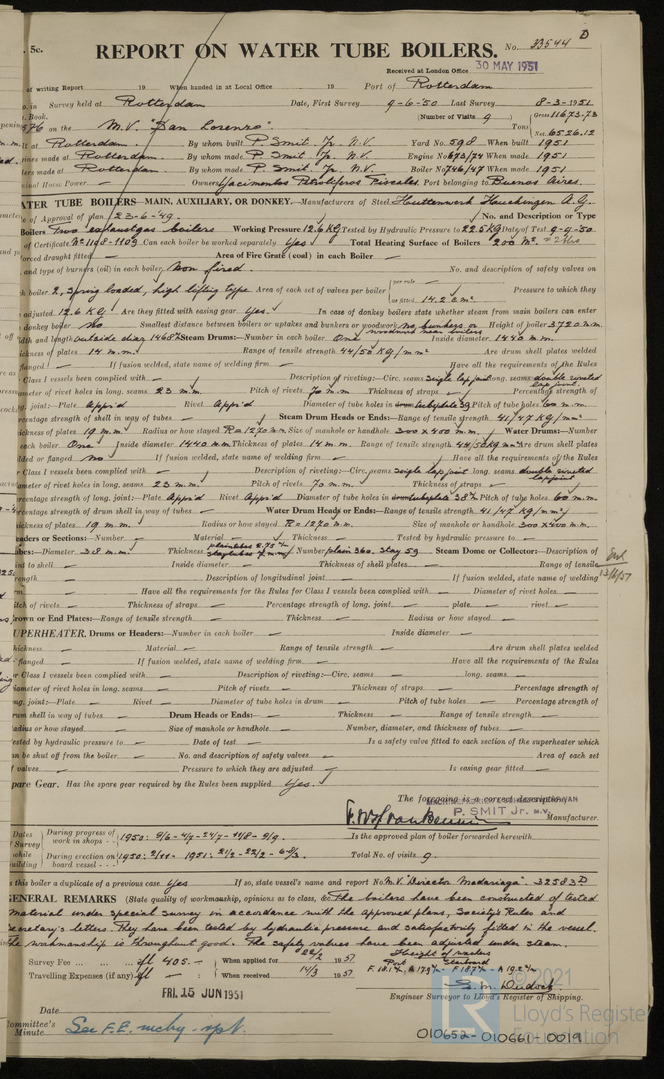 5c. REPORT ON WATER TUBE BOILERS. No. 33544 D
Received at London Office 30 MAY 1951
of writing Report 19 When handed in at Local Office 19 Port of Rotterdam
Survey held at Rotterdam Date, First Survey 9-6-50 Last Survey 8-3-1951
Book. (Number of Visits 9) Gross 11673.73
576 on the M.V. "San Lorenzo" Tons Net 6526.12
at Rotterdam. By whom built P. Smit Jr. N.V. Yard No. 598 When built 1951
made at Rotterdam. By whom made P. Smit Jr. N.V. Engine No. 673/74 When made 1951
made at Rotterdam By whom made P. Smit. Jr. N.V. Boiler No. 746/47 When made 1951
Horse Power Owners Yacimentos Petroliferos Fiscales. Port belonging to Buenos Aires.
WATER TUBE BOILERS—MAIN, AUXILIARY, OR DONKEY.—Manufacturers of Steel
of Approval of plan 23-6-49. No. and Description or Type
Boilers Two exhaustgas boilers Working Pressure 12.6 KG Tested by Hydraulic Pressure to 22.5 KG Date of Test 9-9-50
of Certificate No 1108-1109 Can each boiler be worked separately Yes Total Heating Surface of Boilers 200 m².
forced draught fitted — Area of Fire Grate (coal) in each Boiler —
and type of burners (oil) in each boiler non fired. No. and description of safety valves on
boiler 2, Spring loaded, high lifting type Area of each set of valves per boiler per rule — as fitted 14.2 cm² Pressure to which they
adjusted 12.6 KG. Are they fitted with easing gear. Yes. In case of donkey boilers state whether steam from main boilers can enter
donkey boiler no Smallest distance between boilers or uptakes and bunkers or woodwork no bunkers or woodwork near boilers Height of boiler 3720 m.m.
and length outside diam 1468 Steam Drums:—Number in each boiler One Inside diameter 1440 m.m.
thickness of plates 14 m.m. Range of tensile strength 44/50 KG/mm² Are drum shell plates welded
flanged — If fusion welded, state name of welding firm — Have all the requirements of the Rules
Class I vessels been complied with — Description of riveting:—Circ. seams single lap joint long. seams double riveted lap joint
diameter of rivet holes in long. seams 23 m.m. Pitch of rivets 70 m.m Thickness of straps — Percentage strength of
joint:—Plate Appr'd Rivet Appr'd Diameter of tube holes in tubeplate 39 Pitch of tube holes 60 m.m.
percentage strength of shell in way of tubes — Steam Drum Heads or Ends:—Range of tensile strength 41/47 KG/mm²
thickness of plates 19 m.m. Radius or how stayed R= 1270 m.m. Size of manhole or handhole 300 x 400 m.m. Water Drums:—Number
each boiler One Inside diameter 1440 mm. Thickness of plates 14 m.m. Range of tensile strength 44/50 KG mm² Are drum shell plates
welded or flanged no If fusion welded, state name of welding firm — Have all the requirements of the Rules
Class I vessels been complied with — Description of riveting:—Circ. seams single lap joint long. seams double riveted lap joint
diameter of rivet holes in long. seams 23 m.m. Pitch of rivets 70 m.m. Thickness of straps —
percentage strength of long. joint:—Plate Appr'd Rivet Appr'd Diameter of tube holes in tubeplate 38¾ Pitch of tube holes 60 m.m.
percentage strength of drum shell in way of tubes — Water Drum Heads or Ends:—Range of tensile strength 41/47 KG/mm²
thickness of plates 19 m.m. Radius or how stayed R= 1270 m.m. Size of manhole or handhole 300 x 400 m.m.
Headers or Sections:—Number — Material — Thickness — Tested by hydraulic pressure to —
Tubes:—Diameter 38 m.m. Thickness plaintubes 2.75 staytubes 7 m/m Number plain 360. stay 59 Steam Dome or Collector:—Description of
joint to shell — Inside diameter — Thickness of shell plates — Range of tensile
strength — Description of longitudinal joint — If fusion welded, state name of welding
firm — Have all the requirements of the Rules for Class I vessels been complied with — Diameter of rivet holes —
pitch of rivets — Thickness of straps — Percentage strength of long. joint — plate — rivet —
Crown or End Plates:—Range of tensile strength — Thickness — Radius or how stayed —
SUPERHEATER. Drums or Headers:—Number in each boiler — Inside diameter —
thickness — Material — Range of tensile strength — Are drum shell plates welded
flanged — If fusion welded, state name of welding firm — Have all the requirements of the Rules
for Class I vessels been complied with — Description of riveting:—Circ. seams — long. seams —
diameter of rivet holes in long. seams — Pitch of rivets — Thickness of straps — Percentage strength of
long. joint:—Plate — Rivet — Diameter of tube holes in drum — Pitch of tube holes — Percentage strength of
drum shell in way of tubes — Drum Heads or Ends:— Thickness — Range of tensile strength —
radius or how stayed — Size of manhole or handhole — Number, diameter, and thickness of tubes —
tested by hydraulic pressure to — Date of test — Is a safety valve fitted to each section of the superheater which
can be shut off from the boiler — No. and description of safety valves — Area of each set
of valves — Pressure to which they are adjusted — Is easing gear fitted —
Spare Gear. Has the spare gear required by the Rules been supplied Yes.
The foregoing is a correct description,
P. SMIT Jr. N.V. Manufacturer.
Dates of Survey while building During progress of work in shops - - 1950: 9/6-4/7-24/7-14/8-9/9. Is the approved plan of boiler forwarded herewith
During erection on board vessel - - - 1950: 2/11- 1951: 21/2-22/2-6-8/3 Total No. of visits 9.
Is this boiler a duplicate of a previous case Yes If so, state vessel's name and report No. M.V. "Director Madariaga" 32583 D
GENERAL REMARKS (State quality of workmanship, opinions as to class, &c. The boilers have been constructed of tested
material under special survey in accordance with the approved plans, Society's Rules and
Secretary's letters. They have been tested by hydraulic pressure and satisfactorily fitted in the vessel.
The workmanship is throughout good. The safety valves have been adjusted under steam.
Height of washers
Port Starboard
Survey Fee ... ... ... fl 405.— When applied for 22/2 1951
Travelling Expenses (if any) fl — When received 14/3 1951
Engineer Surveyor to Lloyd's Register of Shipping.
FRI. 15 JUN 1951
Date
Committee's Minute See F.E. mchy. rpt.
© 2021
Lloyd's Register
Foundation
010652-010661-0019